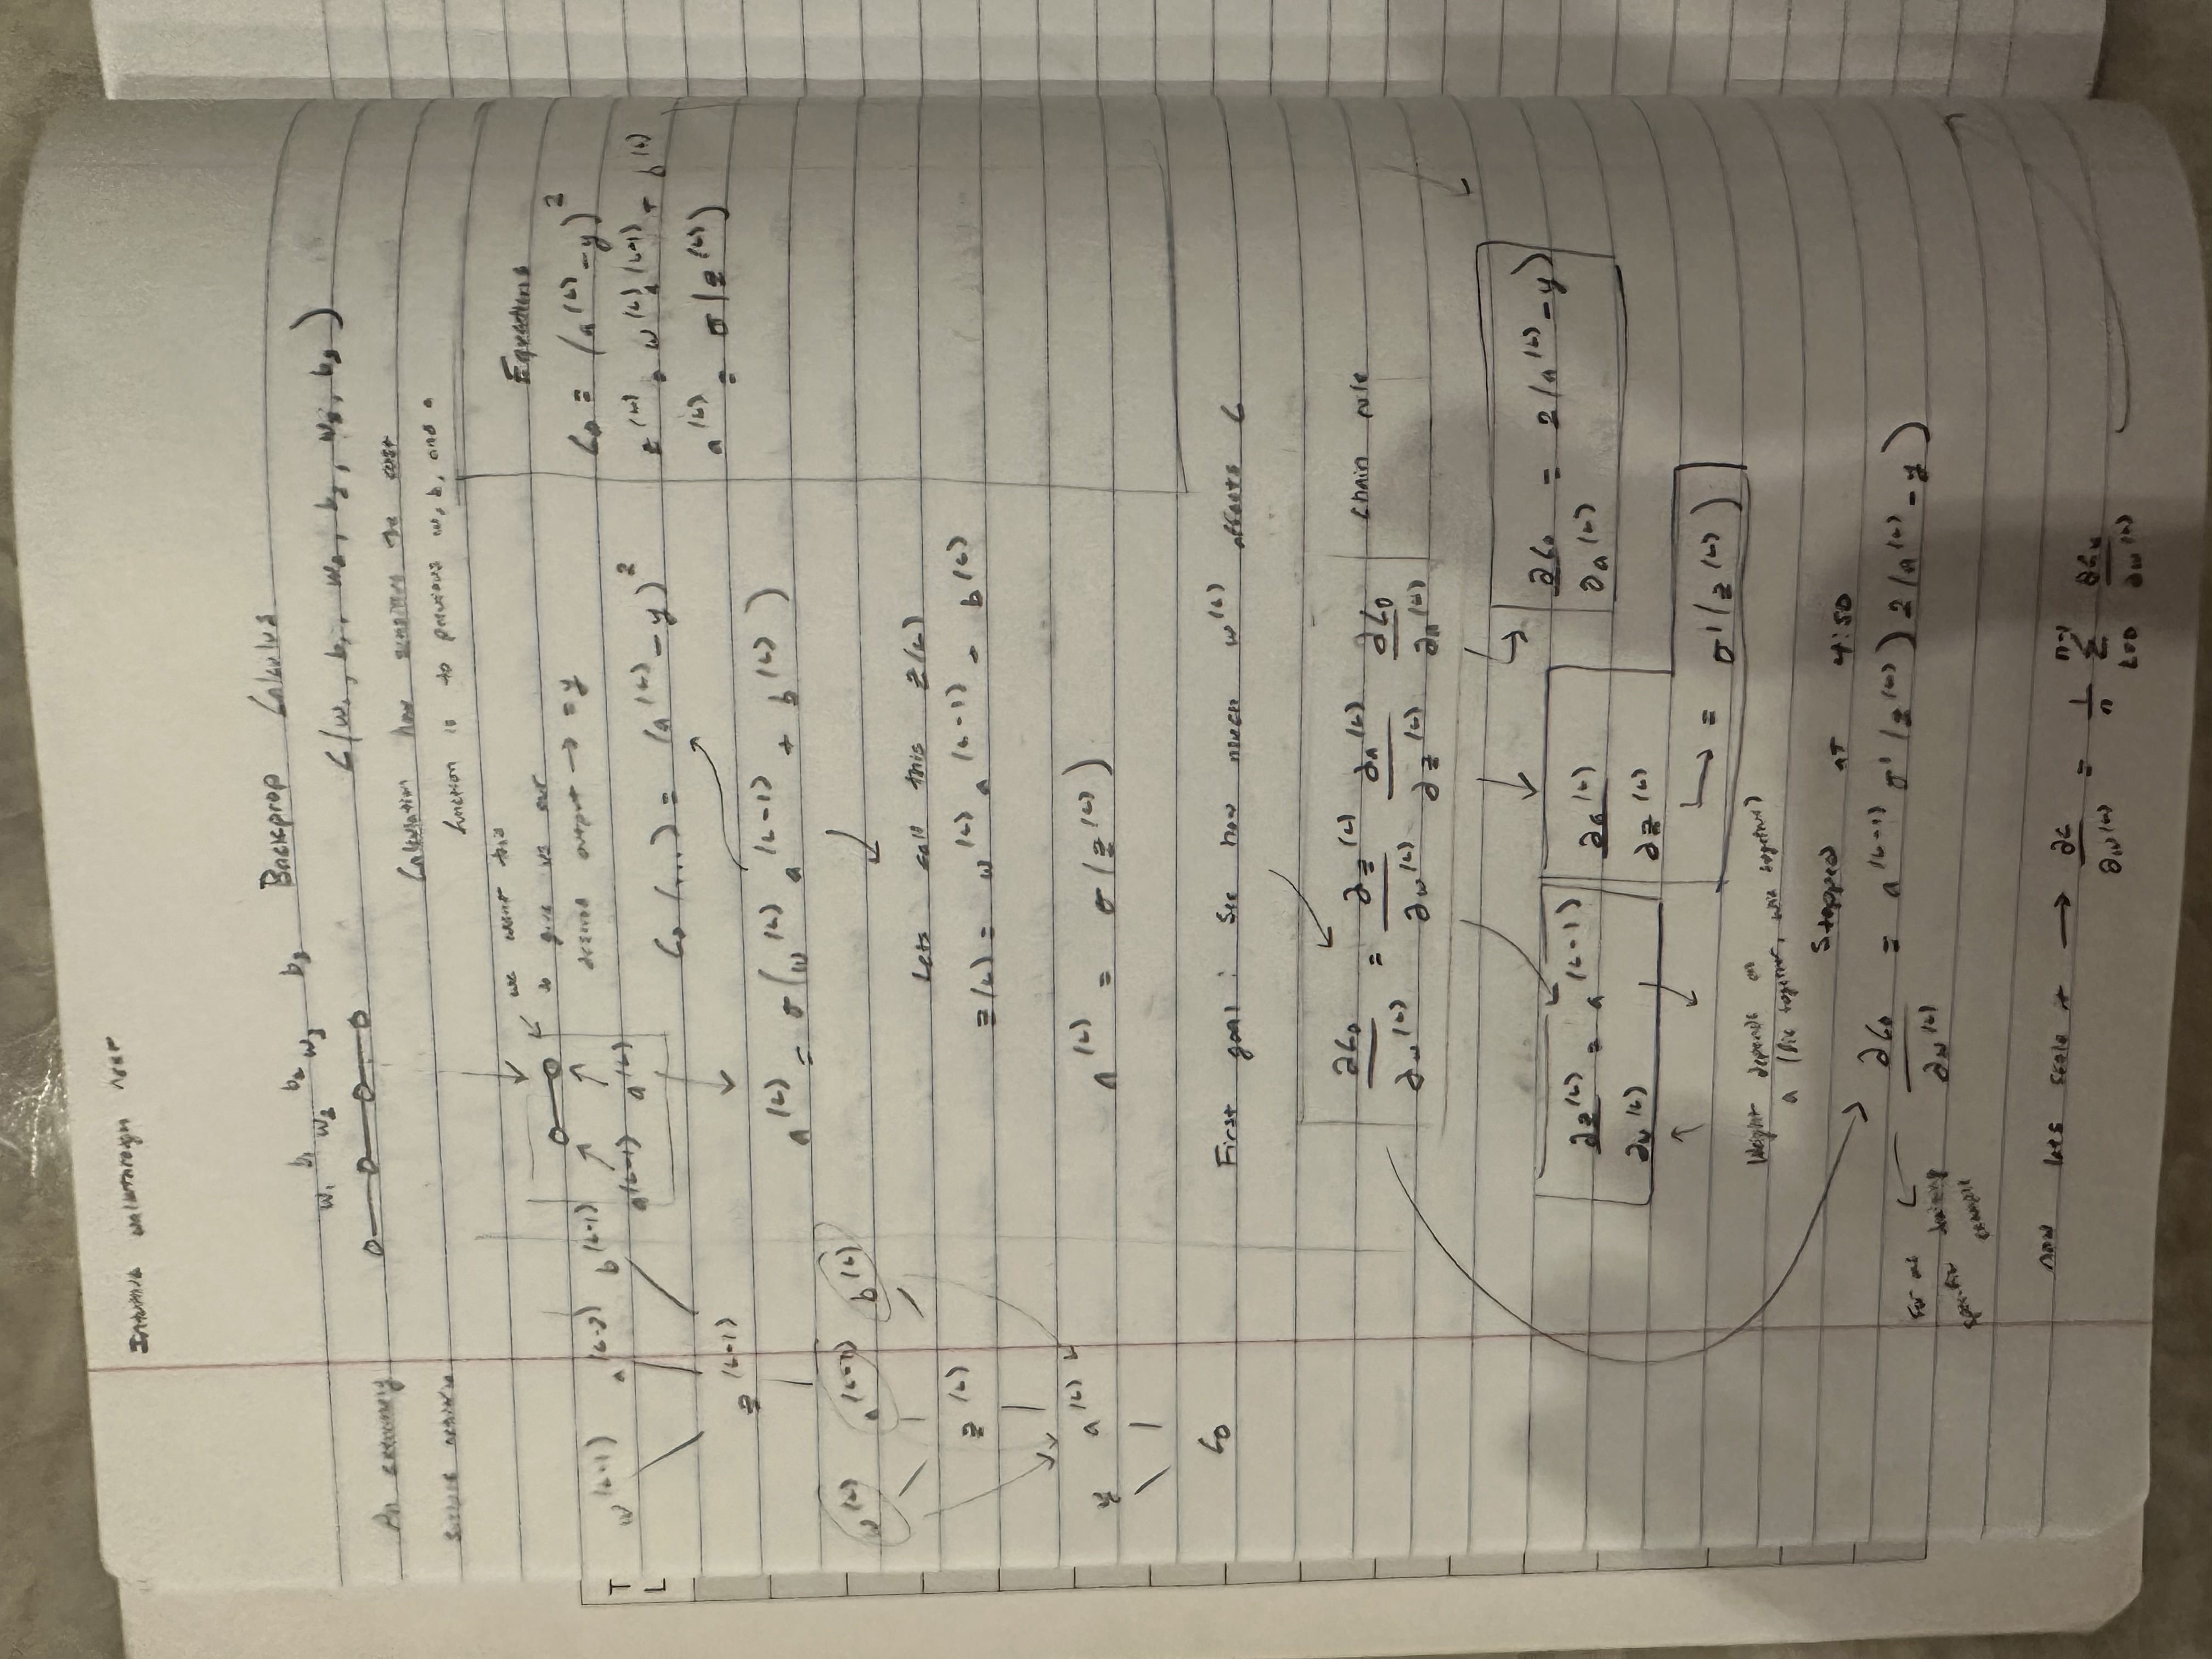 Intuitive walkthrough next
Backprop Calculus
w₁ b₁ w₂ b₂ w₃ b₃
C(w₁, b₁, w₂, b₂, w₃, b₃)
An extremely
simple network
Calculation how sensitive the cost
function is to previous w, b, and a
we want this
to give us our
desired output → = y
a^(L-1) a^(L)
C₀(...) = (a^(L) - y)²
a^(L) = σ(w^(L) a^(L-1) + b^(L))
Lets call this z(L)
z(L) = w^(L) a^(L-1) + b^(L)
a^(L) = σ(z^(L))
Equations
C₀ = (a^(L) - y)²
z^(L) = w^(L) a^(L-1) + b^(L)
a^(L) = σ(z^(L))
T
L
w^(L-1) a^(L-2) b^(L-1)
z^(L-1)
w^(L) a^(L-1) b^(L)
z^(L)
y a^(L)
C₀
First goal: See how much w^(L) affects C
∂C₀/∂w^(L) = ∂z^(L)/∂w^(L) ∂a^(L)/∂z^(L) ∂C₀/∂a^(L) Chain rule
∂C₀/∂a^(L) = 2(a^(L) - y)
∂z^(L)/∂w^(L) = a^(L-1)
∂a^(L)/∂z^(L)
→ = σ'(z^(L))
Weight depends on
a (fire together, wire together)
Stopped at 4:50
∂C₀/∂w^(L) = a^(L-1) σ'(z^(L)) 2(a^(L) - y)
For one
specific training
example
now lets scale it → ∂C/∂w^(L) = 1/n Σ_{k=0}^{n-1} ∂Cₖ/∂w^(L)